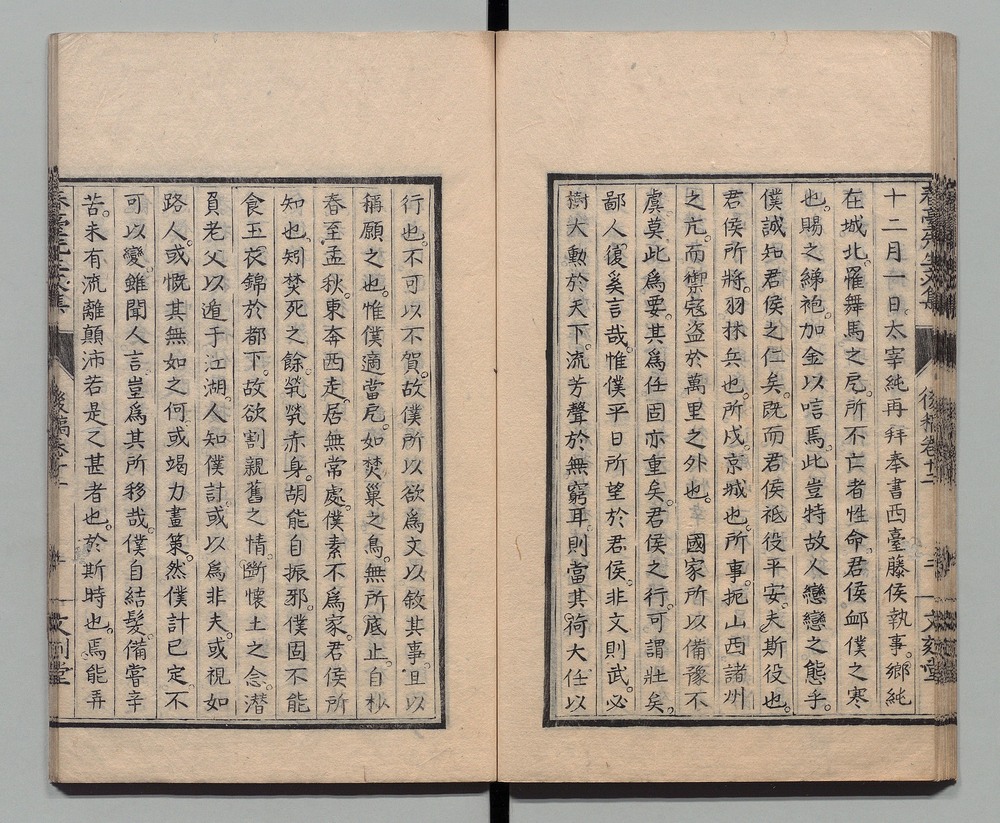 十二月一日。太宰純再拜奉書西臺藤侯執事。鄉純
在城北。羅舞馬之戹。所不亡者性命。君侯卹僕之寒
也。賜之綈袍。加金以唁焉。此豈特故人戀戀之態乎。
僕誠知君侯之仁矣。既而君侯祗役平安。夫斯役也。
君侯所將。羽林兵也。所戍。京城也。所事。扼山西諸州
之亢。而禦寇盜於萬里之外也。國家所以備豫不
虞。莫此爲要。其爲任固亦重矣。君侯之行。可謂壯矣。
鄙人復奚言哉。惟僕平日所望於君侯。非文則武。必
樹大勲於天下。流芳聲於無窮耳。則當其荷大任以
行也。不可以不賀。故僕所以欲爲文以敘其事。且以
稱願之也。惟僕適當戹。如焚巢之鳥。無所底止。自杪
春至孟秋。東奔西走。居無常處。僕素不爲家。君侯所
知也。矧焚死之餘。煢煢赤身。胡能自振邪。僕固不能
食玉衣錦於都下。故欲割親舊之情。斷懷土之念。潛
負老父以遁于江湖。人知僕計。或以爲非夫。或視如
路人。或慨其無如之何。或竭力畫策。然僕計已定。不
可以變。雖聞人言。豈爲其所移哉。僕自結髮。備嘗辛
苦。未有流離顛沛若是之甚者也。於斯時也。焉能弄
後稿卷十二
文刻堂